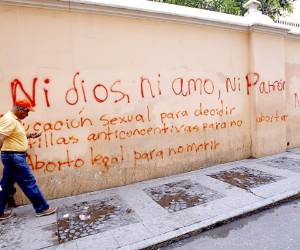 Ni dios, ni amo, Ni Patrón
ucación sexual para decidir
tillas anticonceptivas para no abortar
Aborto legal para no morir